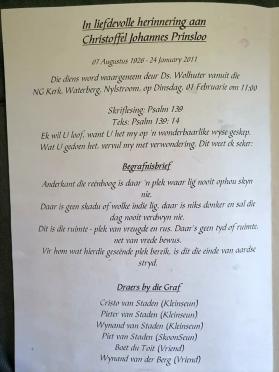 In liefdevolle herinnering aan
Christoffel Johannes Prinsloo
07 Augustus 1926 - 24 January 2011
Die diens word waargeneem deur Ds. Wolhuter vanuit die
NG Kerk, Waterberg, Nylstroom, op Dinsdag, 01 Februarie om 11:00
Skriflesing: Psalm 139
Teks: Psalm 139: 14
Ek wil U loof, want U het my op 'n wonderbaarlike wyse geskep.
Wat U gedoen het, vervul my met verwondering. Dit weet ek seker.
Begrafnisbrief
Anderkant die reënboog is daar 'n plek waar lig nooit ophou skyn
nie.
Daar is geen skadu of wolke indie lig, daar is niks donker en sal die
dag nooit verdwyn nie.
Dit is die ruimte - plek van vreugde en rus. Daar's geen tyd of ruimte,
net van vrede bewus.
Vir hom wat hierdie geseënde plek bereik, is dit die einde van aardse
stryd.
Draers by die Graf
Cristo van Staden (Kleinseun)
Pieter van Staden (Kleinseun)
Wynand van Staden (Kleinseun)
Piet van Staden (SkoonSeun)
Boet du Toit (Vriend)
Wynand van der Berg (Vriend)